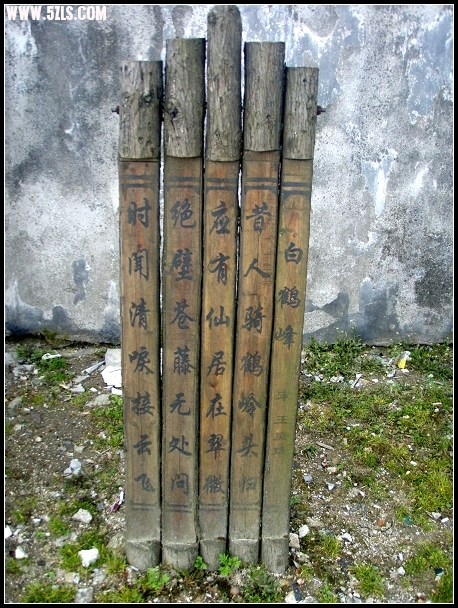 WWW.5ZLS.COM
白鹤峰
昔人骑鹤岭头归
应有仙居在翠微
绝壁苍藤无处问
时闻清唳接云飞